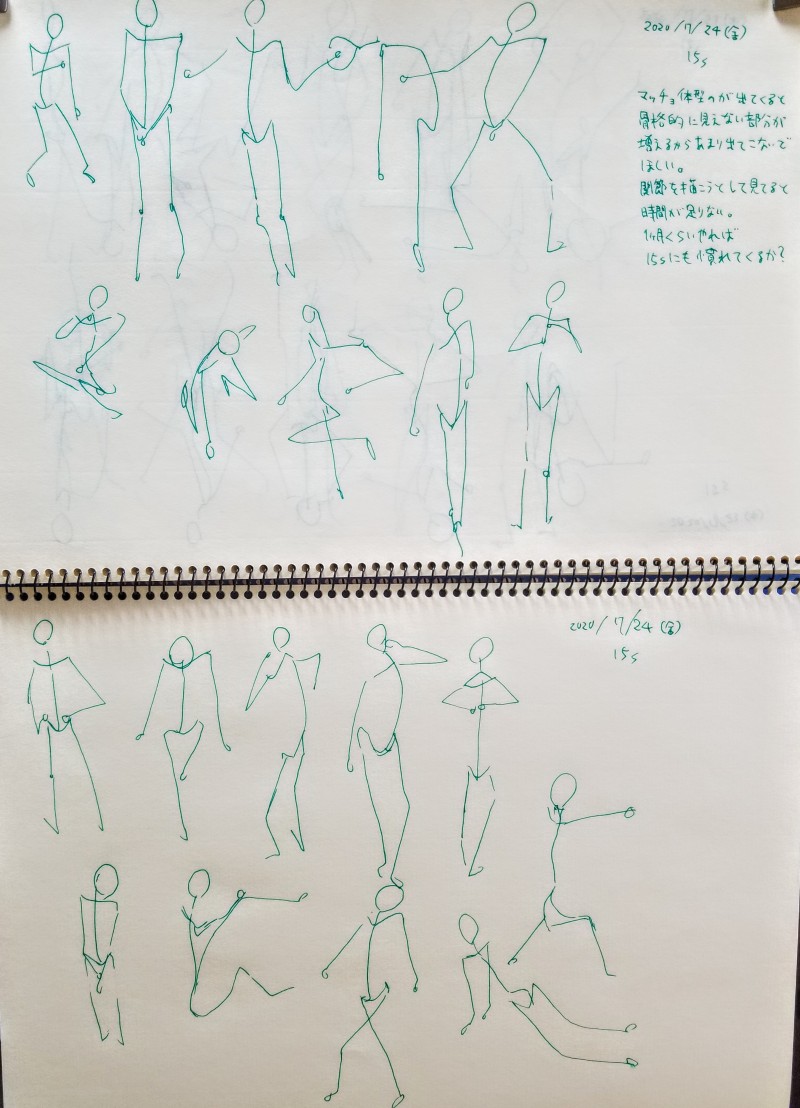 2020/7/24(金)
15s
マッチョ体型のが出てくると
骨格的に見えない部分が
増えるからあまり出てこないで
ほしい。
関節を描こうとして見てると
時間が足りない。
1ヶ月くらいやれば
15sにも慣れてくるか?
2020/7/24(金)
15s